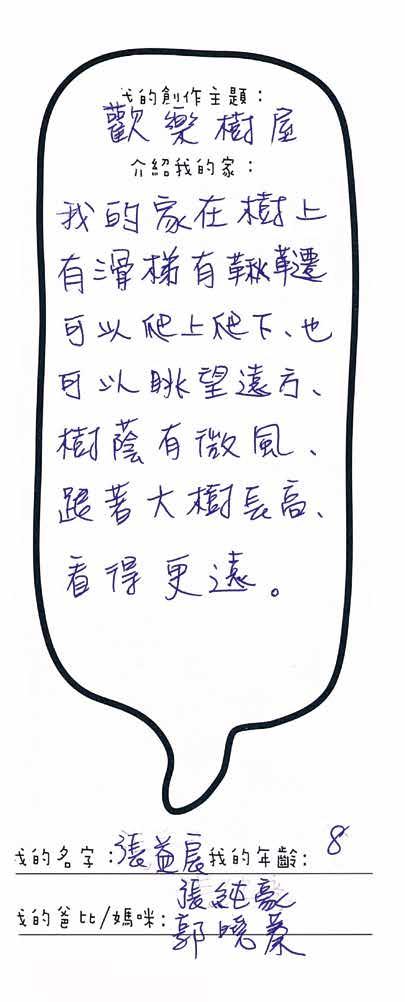 我的創作主題：
歡樂樹屋
介紹我的家：
我的家在樹上
有滑梯有鞦韆
可以爬上爬下、也
可以眺望遠方、
樹蔭有微風、
跟著大樹長高、
看得更遠。
我的名字：張益宸我的年齡：8
張純豪
我的爸比/媽咪：
郭曉蓁